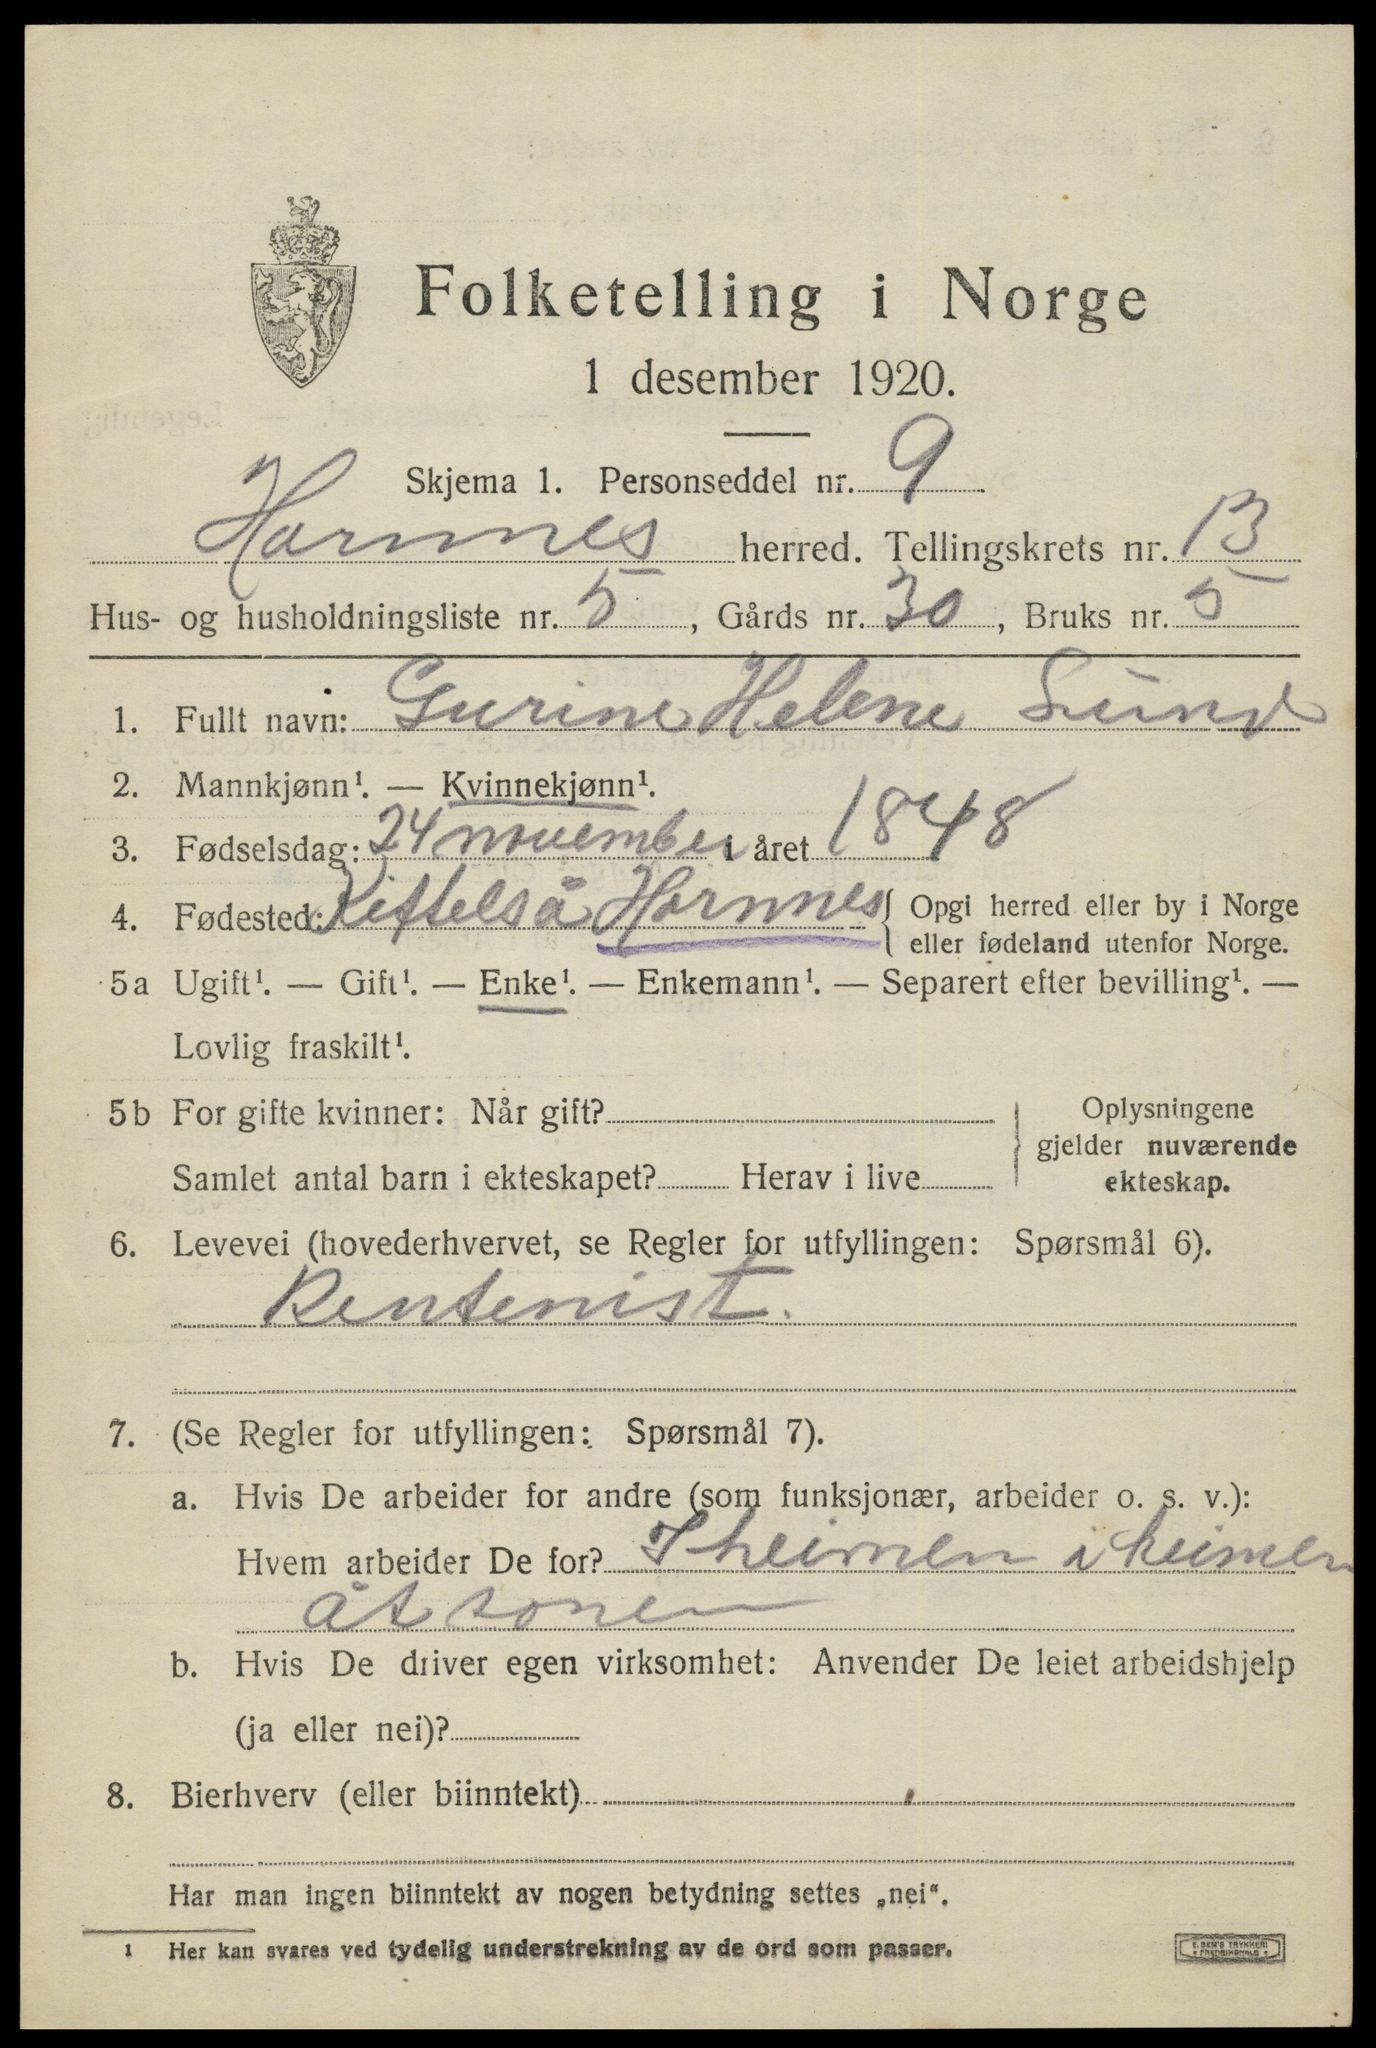 Folketelling i Norge
1 desember 1920.
Skjema 1. Personseddel nr. 9
Hornnes herred. Tellingskrets nr. 13
Hus- og husholdningsliste nr. 5, Gårds nr. 30, Bruks nr. 5
1. Fullt navn: Gurine Helene Lund
2. Mannkjønn¹. — Kvinnekjønn¹.
3. Fødselsdag: 24 november i året 1848
4. Fødested: Kittelså Hornnes { Opgi herred eller by i Norge
eller fødeland utenfor Norge.
5a Ugift¹. — Gift¹. — Enke¹. — Enkemann¹. — Separert efter bevilling¹. —
Lovlig fraskilt¹.
5b For gifte kvinner: Når gift?
Samlet antal barn i ekteskapet? Herav i live
Oplysningene
gjelder nuværende
ekteskap.
6. Levevei (hovederhvervet, se Regler for utfyllingen: Spørsmål 6).
Rentenist.
7. (Se Regler for utfyllingen: Spørsmål 7).
a. Hvis De arbeider for andre (som funksjonær, arbeider o. s. v.):
Hvem arbeider De for? I heimen i heimen
åt sonen
b. Hvis De driver egen virksomhet: Anvender De leiet arbeidshjelp
(ja eller nei)?
8. Bierhverv (eller biinntekt)
Har man ingen biinntekt av nogen betydning settes „nei“.
1 Her kan svares ved tydelig understrekning av de ord som passer.
E. SEM'S TRYKKERI
FREDRIKSHALD